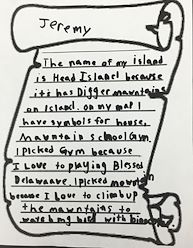 Jeremy
The name of my island
is Head Island because
it's has Digger mauntains
on Island. on my map I
have symbols for house,
Mauntain school Gym
I picked Gym because
I Love to playing Blessed
Delawaave. I picked mountain
because I Love to climb up
the mauntains to
wave big bird with